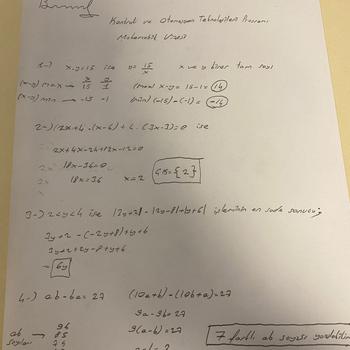 Kontrol ve Otomasyon Teknolojileri Programı
Matematik Vizesi
1-) x.y=15 ise y=15/x x ve y birer tam sayı
(x-y) max → 15 1 (max) x-y = 15-1=14
(x-y) min → -15 -1 (min) (-15)-(-1)=-14
2-) (2x+4.(x-6)+4.(3x-3)=0 ise
2x+4x-24+12x-12=0
18x-36=0
18x=36 x=2 Ç.K={2}
3-) 2<y<4 ise |3y+2|-|2y-8|+|y+6| işleminin en sade sonucu;
3y+2-(-2y+8)+y+6
3y+2+2y-8+y+6
=6y
4-) ab-ba=27 (10a+b)-(10b+a)=27
9a-9b=27
ab → 96 9(a-b)=27
sayıları 85 7 farklı ab sayısı